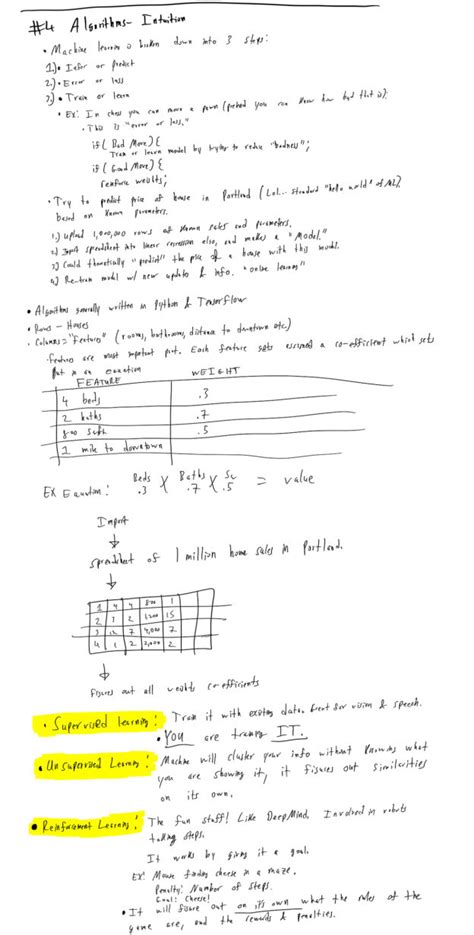 #4 Algorithms- Intuition
• Machine learning is broken down into 3 steps:
1.) • Infer or predict
2.) • Error or loss
3.) • Train or learn
• Ex: In chess you can move a pawn (predict you can know how bad that is).
• This is "error or loss."
if (Bad Move) {
Train or learn model by trying to reduce "badness";
if (Good Move) {
reinforce weights;
• Try to predict price of house in Portland (Lol... standard "hello world" of ML).
based on known parameters.
1.) upload 1,000,000 rows of known sales and parameters.
2.) Import spreadsheet into linear regression algo, and makes a "Model."
3.) Could theoretically "predict" the price of a house with this model.
4.) Re-train model w/ new updates & info. "online learning"
• Algorithms generally written in Python & Tensorflow
• Rows - Houses
• Columns = "features" (rooms, bathrooms, distance to downtown etc.)
• features are most important part. Each feature gets assigned a co-efficient which gets
put in an equation
FEATURE WEIGHT
4 beds .3
2 baths .7
800 sqft .5
1 mile to downtown
Ex Equation: Beds .3 X Baths .7 X Sq .5 = value
Import
spreadsheet of 1 million home sales in Portland.
1 4 4 800 1
2 3 2 1200 15
3 12 7 4,000 7
4 1 2 2,000 2
figures out all weights co-efficients
• Supervised learning: Train it with existing data. Great for vision & speech.
• YOU are training IT.
• Unsupervised Learning: Machine will cluster your info without knowing what
you are showing it, it figures out similarities
on its own.
• Reinforcement Learning: The fun stuff! Like DeepMind. Involved in robots
taking steps.
It works by giving it a goal.
Ex: Mouse finding cheese in a maze.
Penalty: Number of steps.
Goal: Cheese!
• It will figure out on its own what the rules of the
game are, and the rewards & penalties.